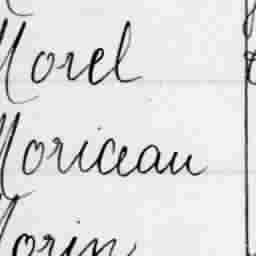 Morel
Moriceau
Morin